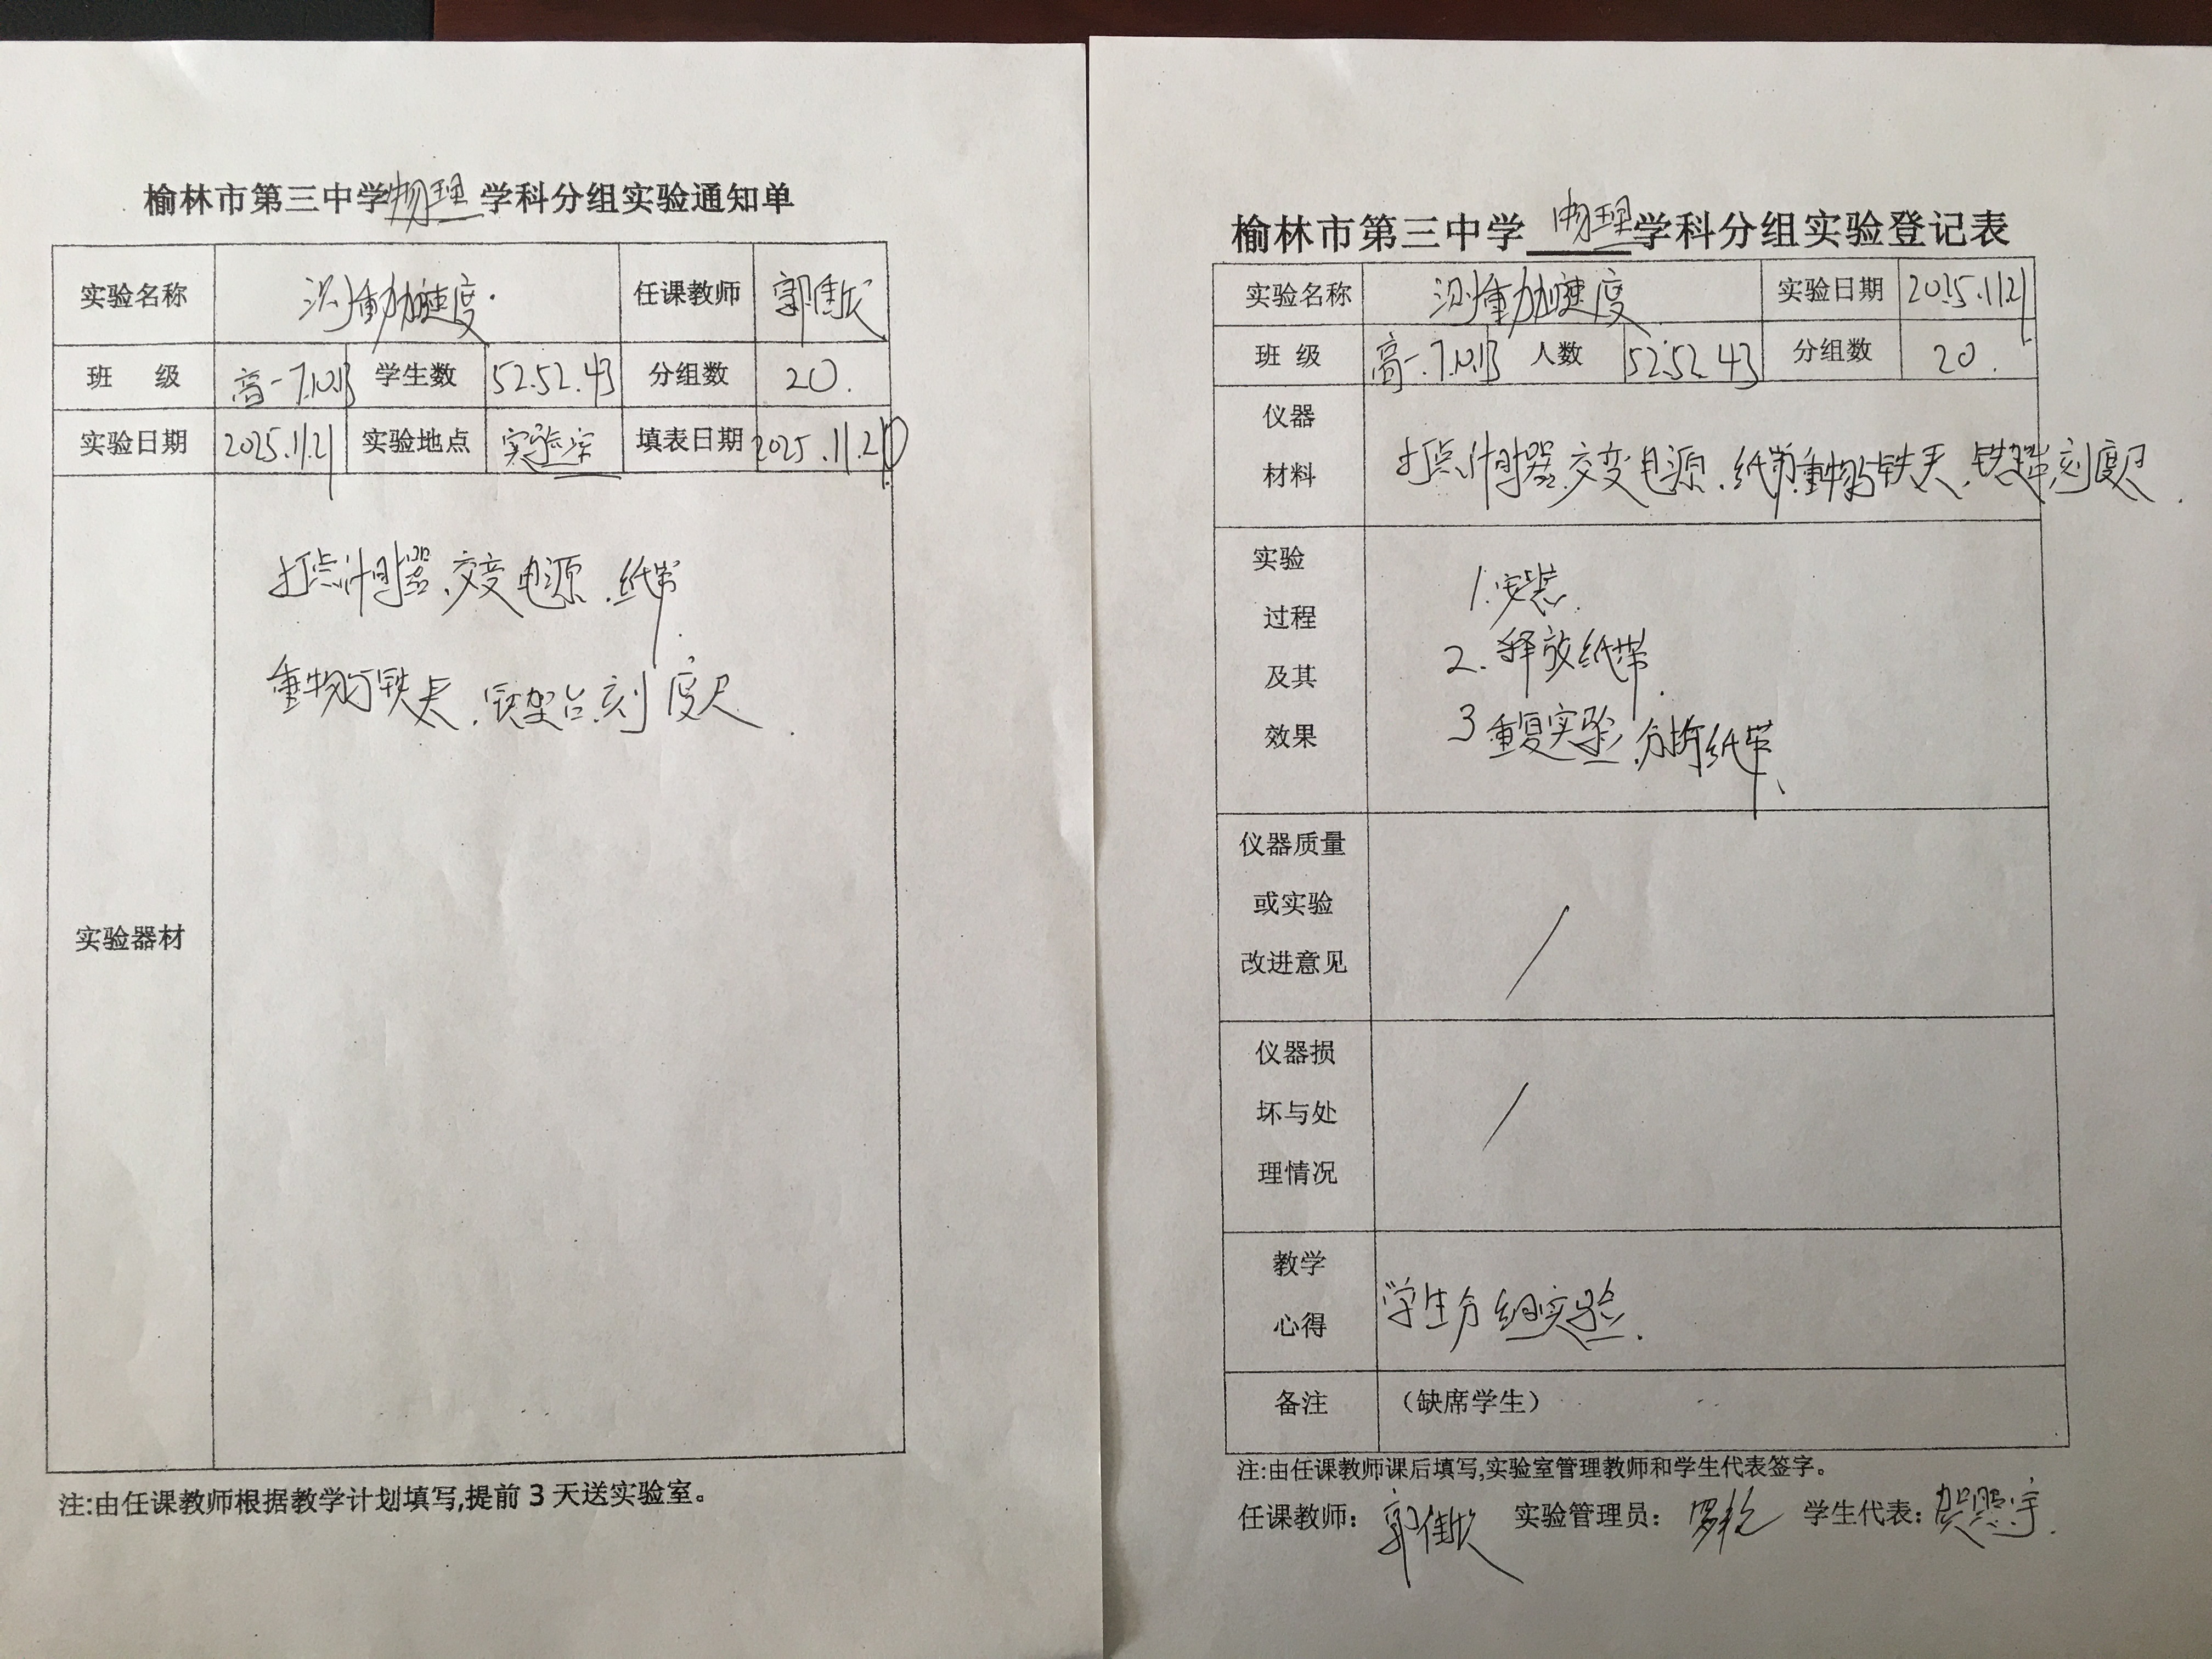 榆林市第三中学物理学科分组实验通知单
实验名称 测重力加速度. 任课教师 郭佳欣
班 级 高一7.10.13 学生数 52.52.43 分组数 20.
实验日期 2025.11.21 实验地点 实验室 填表日期 2025.11.20
实验器材
打点计时器、交变电源、纸带
重物与铁夹、铁架台、刻度尺.
注:由任课教师根据教学计划填写,提前3天送实验室。
榆林市第三中学物理学科分组实验登记表
实验名称 测重力加速度 实验日期 2025.11.21
班 级 高一.7.10.13 人数 52.52.43 分组数 20.
仪器
材料
打点计时器、交变电源、纸带、重物与铁夹、铁架台、刻度尺.
实验
过程
及其
效果
1.安装.
2.释放纸带.
3 重复实验,分析纸带、
仪器质量
或实验
改进意见
/
仪器损
坏与处
理情况
/
教学
心得
学生分组实验.
备注 （缺席学生）
注:由任课教师课后填写,实验室管理教师和学生代表签字。
任课教师: 郭佳欣 实验管理员: 学生代表: